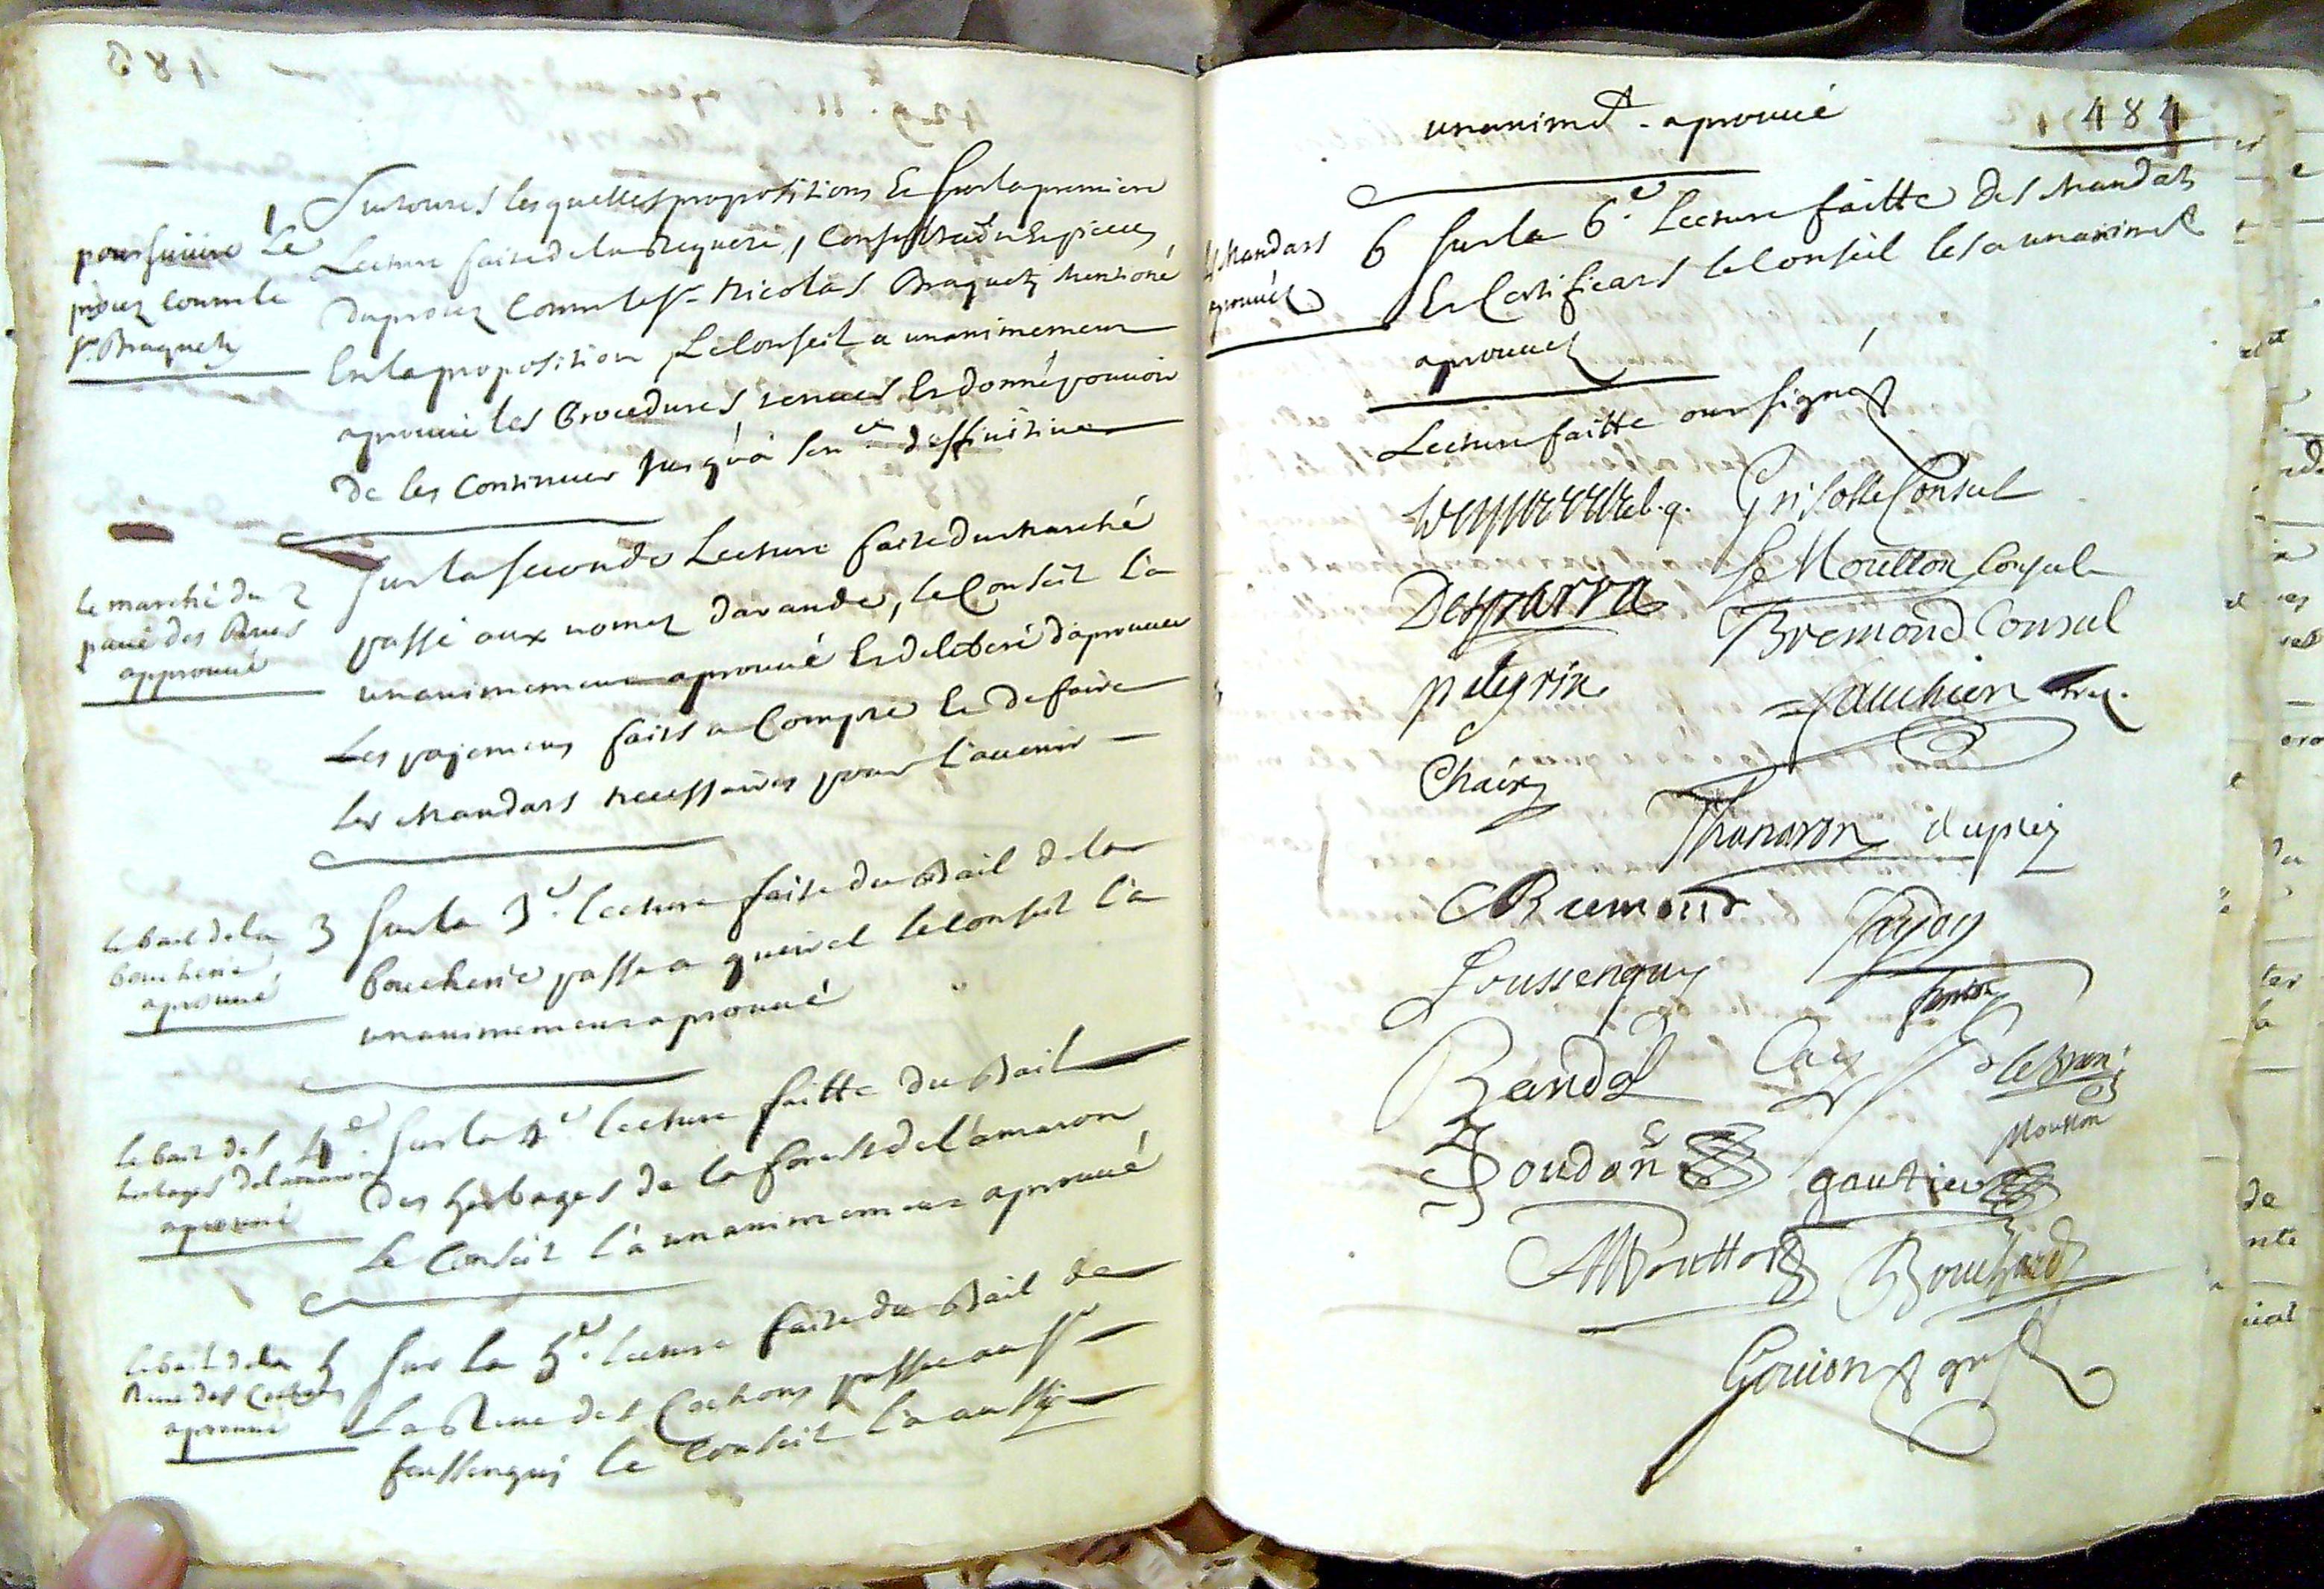 poursuivre Le
procez contre le
Sr. Braquety
1 Sur toutes lesquelles propositions Et sur la premiere
Lecture faite de la Requete, et pieces
du procez contre le Sr. Nicolas Braquety mentioné
En la proposition, Le Conseil a unanimement
aprouué les Procedures tenues Et donné pouuoir
de les Continuer Jusqu'à Sen.ce deffinitiue
le marché du
paué des Rues
approuué
2 Sur la seconde Lecture faite du marché
passé aux nomez dauande, le Conseil l'a
unanimement aprouué Et deliberé d'aprouuer
Les pajemens faits a Compte Et de faire
Les Mandats necessaires pour l'auenir
le bail de la
boucherie
aprouué
3 Sur la 3e. lecture faite du Bail de la
boucherie passe a queirel le conseil l'a
unanimement aprouué
le bail des
herbages
aprouué
4e. Sur la 4e. lecture faitte du Bail
des herbages de la forest de lamaron
Le Conseil l'a unanimement aprouué
le bail de la
Reue des Cochons
aprouué
5 Sur la 5e. lecture faite du Bail de
La Reue des Cochons passe au Sr
foussenquy le Conseil l'a aussy
484
unanimt. aprouué
Mandats
aprouués
6 Sur la 6e. Lecture faitte des Mandats
Et Certificats le Conseil les a unanimt
aprouuez
Lecture faitte ont signés
Grisolle Consul
Moutton Consul
Desparra
Bremond Consul
pelegrin
Fauchier
Chaix
Thanaron dupuy
Bremond
Fayon
foussenquy
Bandol
Cay
Le Bran
Moutton
Boudon
gautier
Moutton
Bouchard
Gouion gref